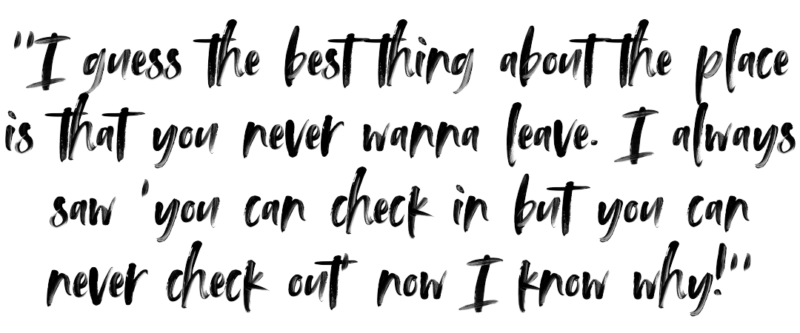 "I guess the best thing about the place
is that you never wanna leave. I always
saw 'you can check in but you can
never check out' now I know why!"